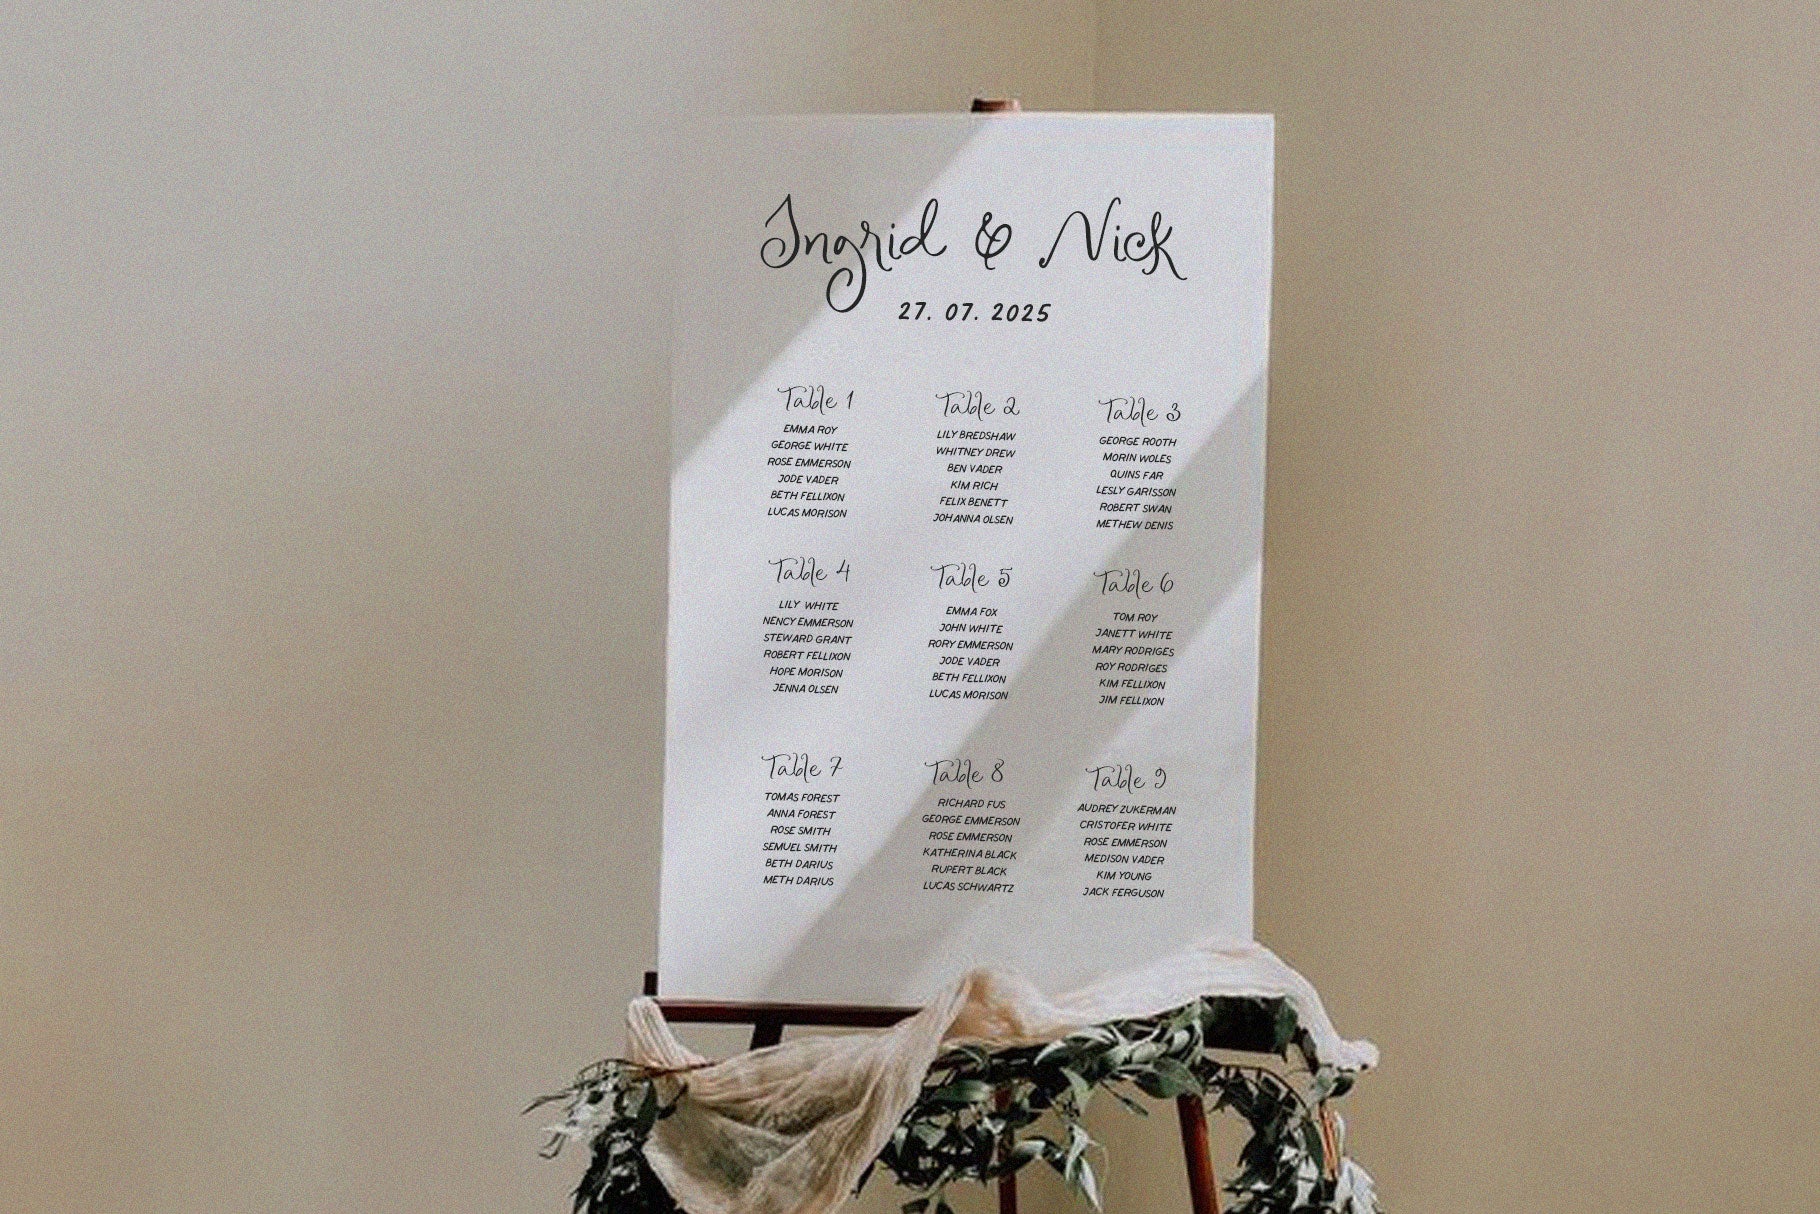 Ingrid & Nick
27. 07. 2025
Table 1
EMMA ROY
GEORGE WHITE
ROSE EMMERSON
JODE VADER
BETH FELLIXON
LUCAS MORISON
Table 2
LILY BREDSHAW
WHITNEY DREW
BEN VADER
KIM RICH
FELIX BENETT
JOHANNA OLSEN
Table 3
GEORGE ROOTH
MORIN WOLES
QUINS FAR
LESLY GARISSON
ROBERT SWAN
METHEW DENIS
Table 4
LILY WHITE
NENCY EMMERSON
STEWARD GRANT
ROBERT FELLIXON
HOPE MORISON
JENNA OLSEN
Table 5
EMMA FOX
JOHN WHITE
RORY EMMERSON
JODE VADER
BETH FELLIXON
LUCAS MORISON
Table 6
TOM ROY
JANETT WHITE
MARY RODRIGES
ROY RODRIGES
KIM FELLIXON
JIM FELLIXON
Table 7
TOMAS FOREST
ANNA FOREST
ROSE SMITH
SEMUEL SMITH
BETH DARIUS
METH DARIUS
Table 8
RICHARD FUS
GEORGE EMMERSON
ROSE EMMERSON
KATHERINA BLACK
RUPERT BLACK
LUCAS SCHWARTZ
Table 9
AUDREY ZUKERMAN
CRISTOFER WHITE
ROSE EMMERSON
MEDISON VADER
KIM YOUNG
JACK FERGUSON